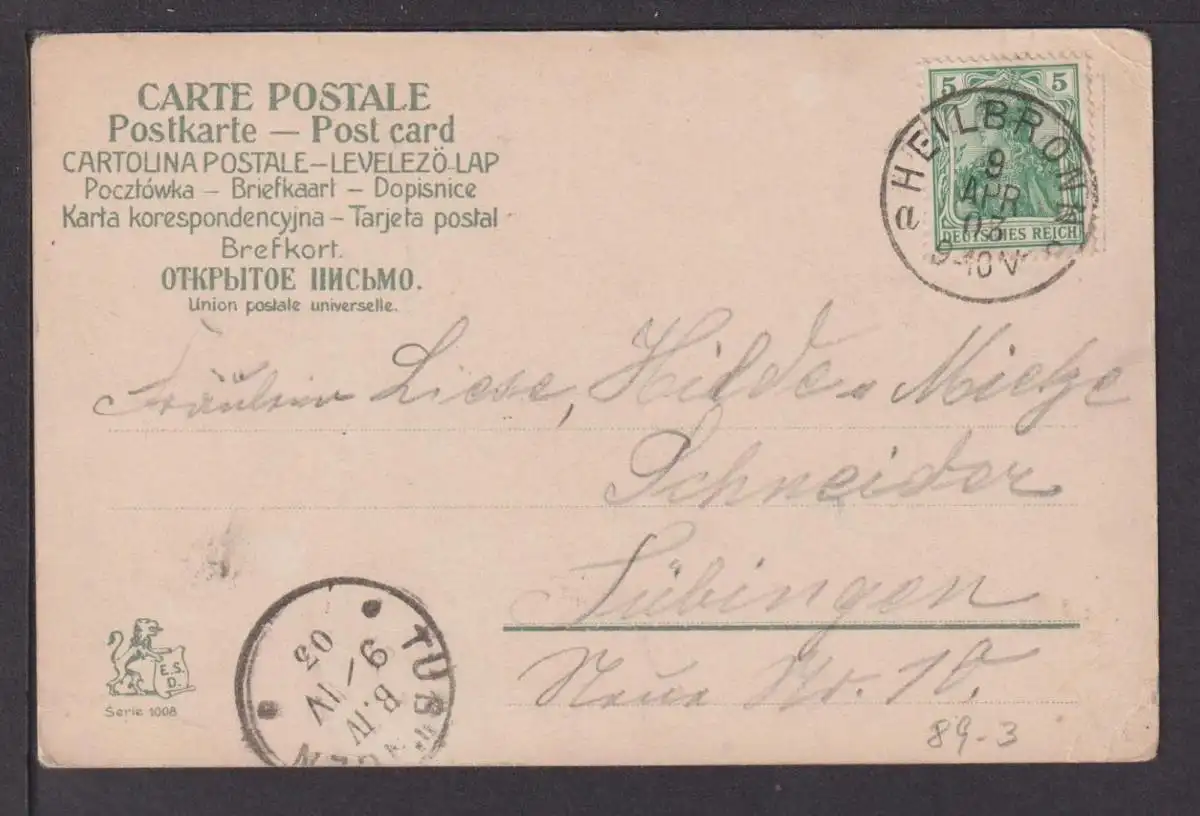 CARTE POSTALE
Postkarte – Post card
CARTOLINA POSTALE–LEVELEZÖ-LAP
Pocztówka – Briefkaart – Dopisnice
Karta korespondencyjna – Tarjeta postal
Brefkort.
ОТКРЫТОЕ ПИСЬМО.
Union postale universelle.
5 5
DEUTSCHES REICH
HEILBRONN
a
9
APR
03
9-10 V
Fräulein Liese, Hilde u Mietze
Schneider
Tübingen
Neue Str. 10.
TÜBINGEN
9 IV 03
B. IV
E.S.
D.
Serie 1008
89-3